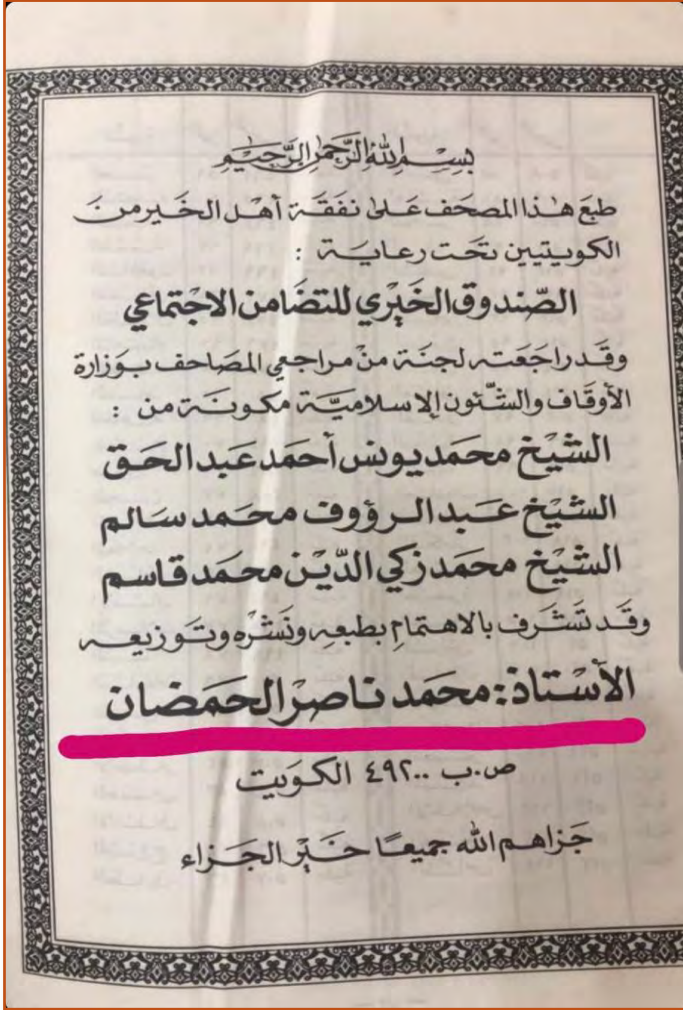 بِسْمِ اللهِ الرَّحْمٰنِ الرَّحِيْمِ
طبعَ هٰذا المصحَف عَلىٰ نفقَة أهْل الخَير منَ
الكويتيين تحَت رعايَة :
الصّندوق الخَيْري للتضَامن الاجْتماعي
وقَد راجَعَته لجنَة منْ مراجعي المصَاحف بوَزارة
الأوقَاف والشّئون الإسلاميَّة مكونَة من :
الشيْخ محمَد يونس أحمَد عَبد الحَق
الشيْخ عَبد الرؤوف محمَد سَالم
الشيْخ محمَد زكي الدّيْن محمَد قاسم
وقَد تشَرف بالاهتمامِ بطبعِه ونَشْرْه وتَوزيعه
الأسْتاذ: محمَد ناصرْ الحَمَضان
ص.ب ٤٩٢٠٠ الكوَيت
جَزاهم الله جميعًا خَيْر الجَزاء